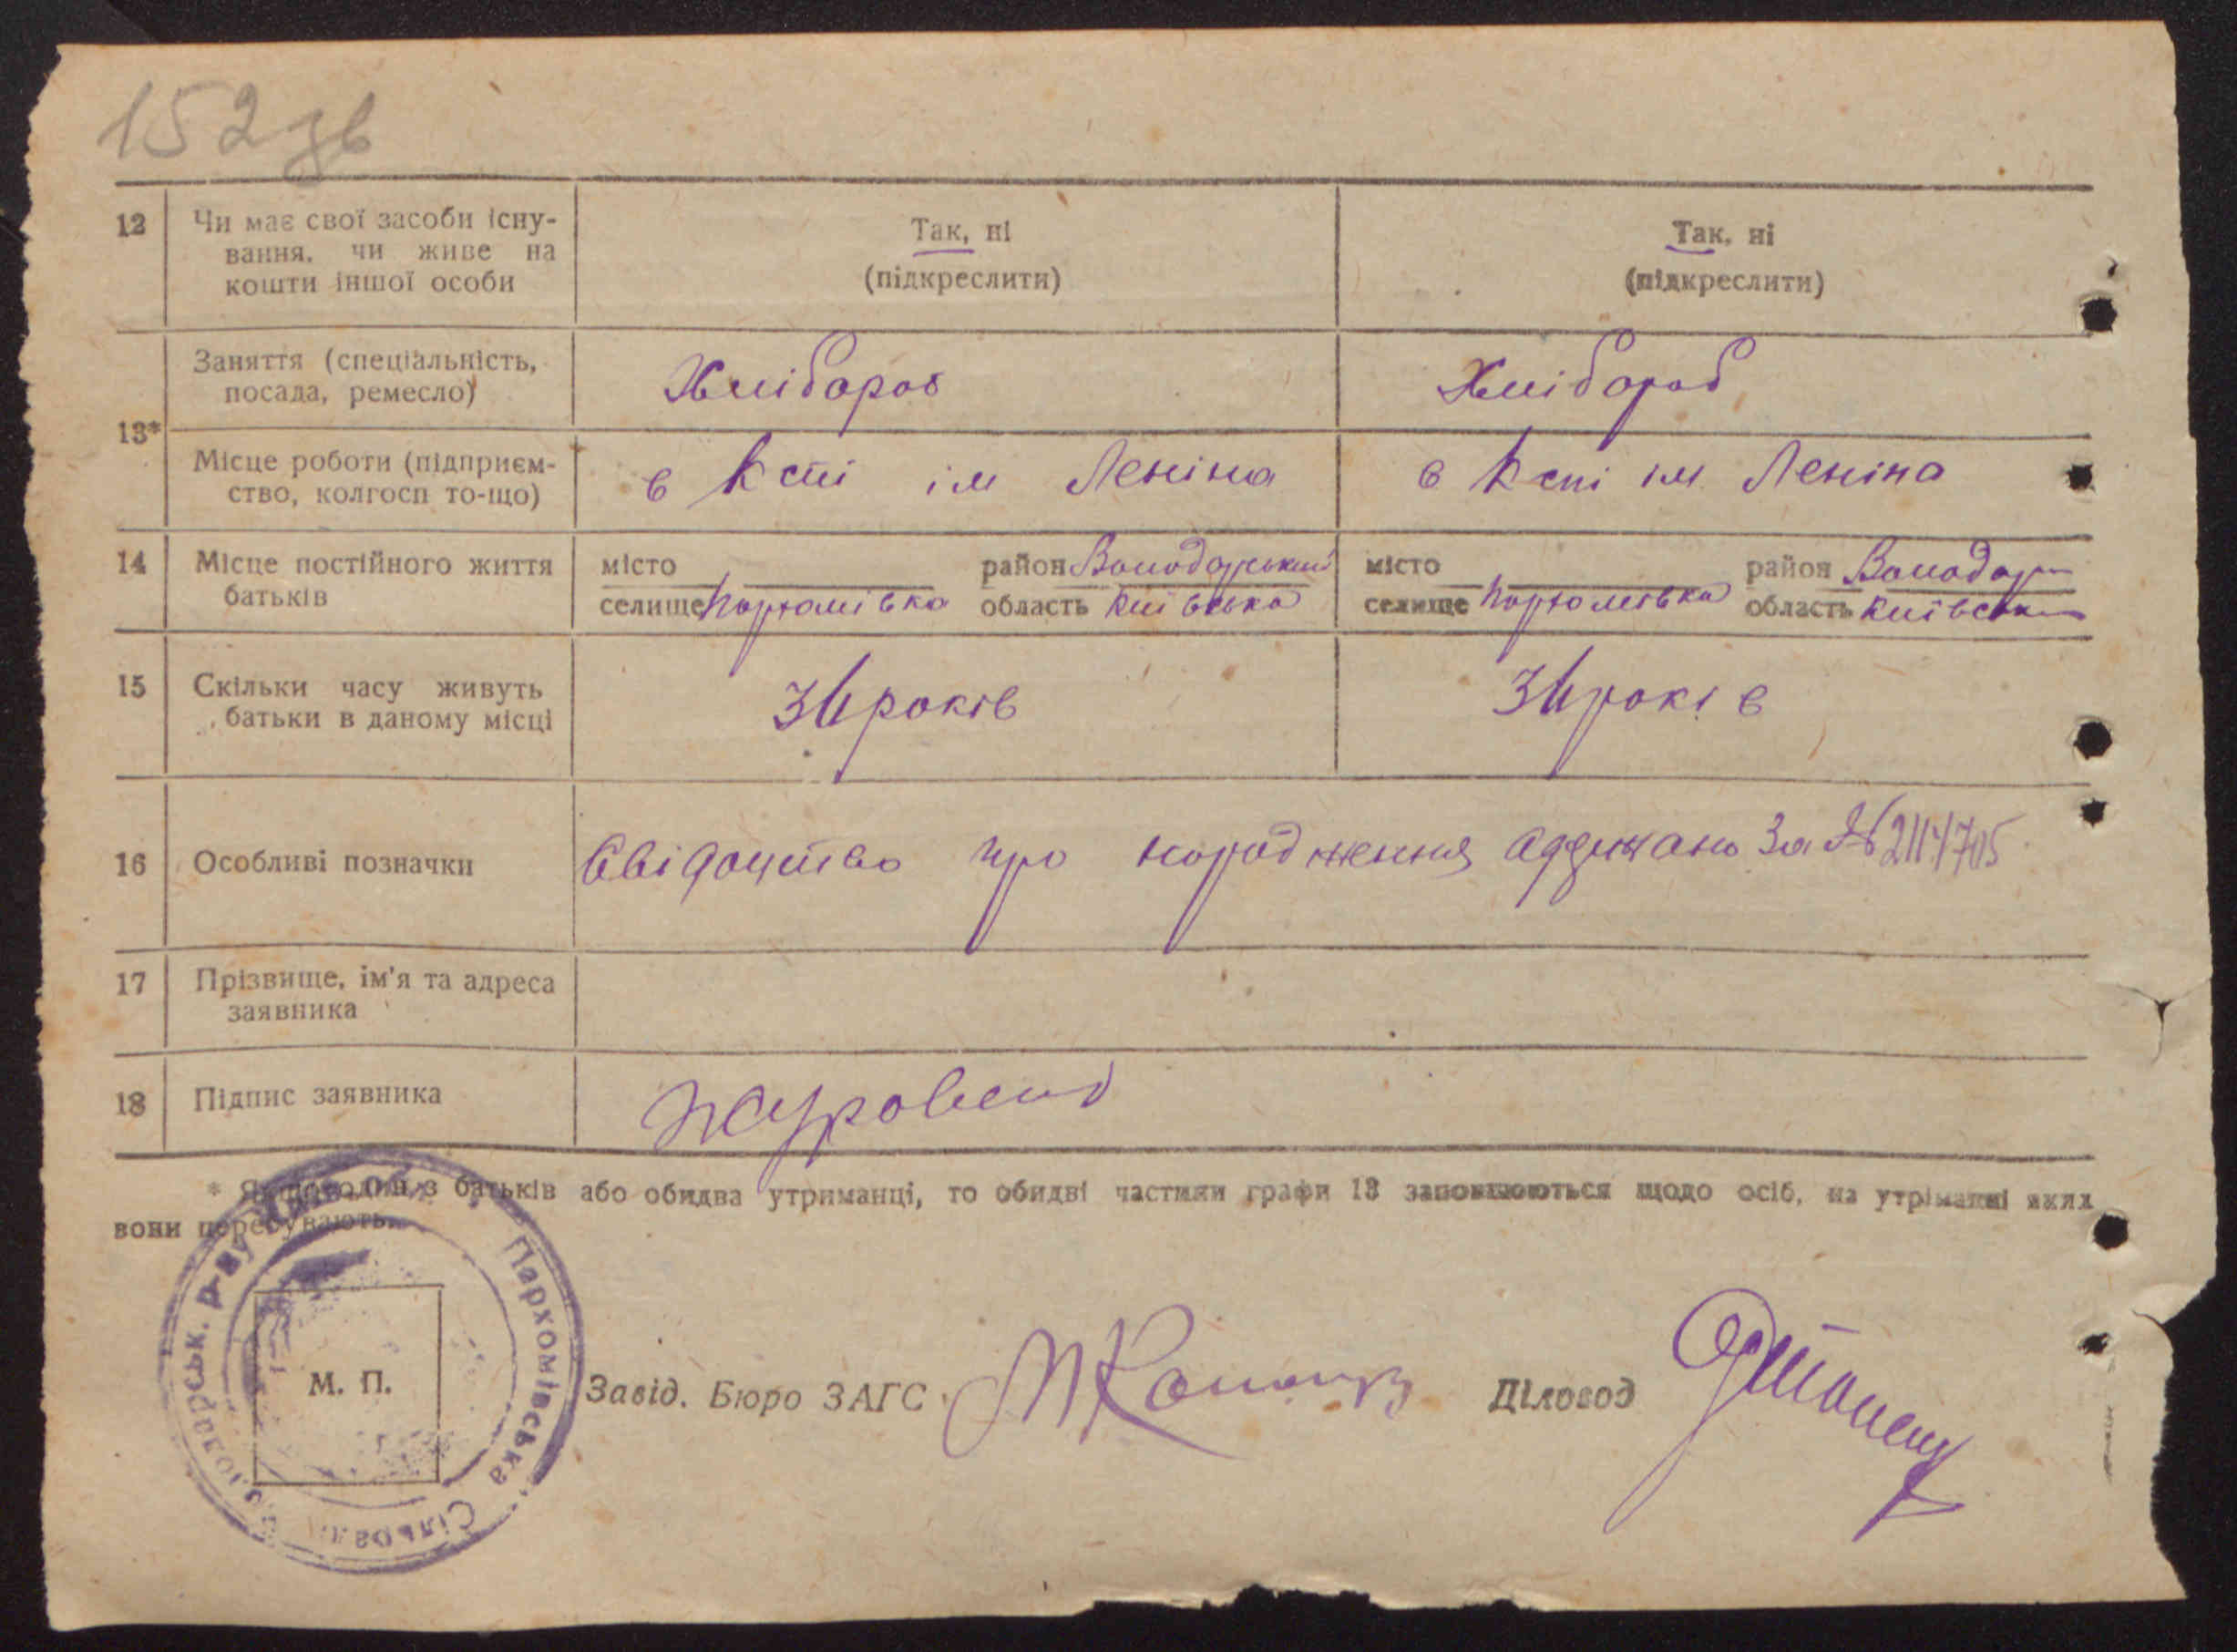 152 зв
12 Чи має свої засоби існу-
вання, чи живе на
кошти іншої особи
Так, ні
(підкреслити)
Так, ні
(підкреслити)
13*
Заняття (спеціальність,
посада, ремесло)
Хлібороб
Хлібороб
Місце роботи (підприєм-
ство, колгосп то-що)
в Кспі ім Леніна
в Кспі ім Леніна
14 Місце постійного життя
батьків
місто район Володарський
селище Пархомівка область Київська
місто район Володар
селище Пархомівка область Київськ
15 Скільки часу живуть
батьки в даному місці
років
років
16 Особливі позначки
Свідоцтво про народження одержано За №
17 Прізвище, ім'я та адреса
заявника
18 Підпис заявника
* Якщо один з батьків або обидва утриманці, то обидві частини графи 13 заповнюються щодо осіб, на утріманні яких
вони перебувають.
Пархомівська Сільрада
Володарськ. р-ну
М. П.
Завід. Бюро ЗАГС
Діловод